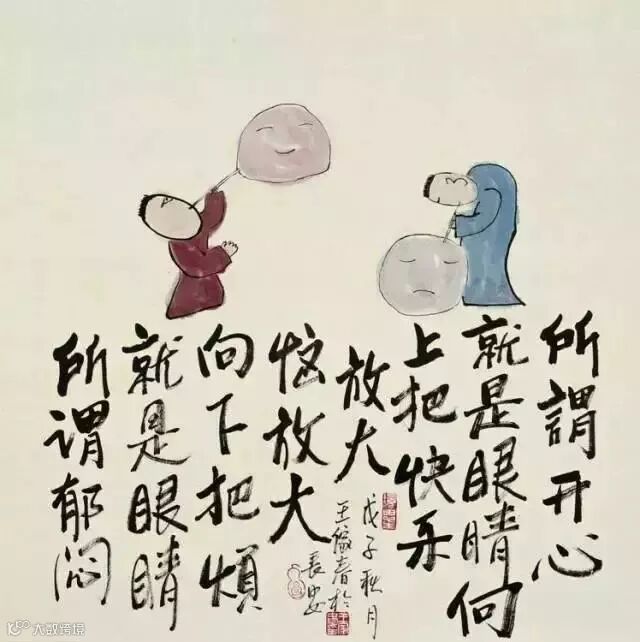 所謂开心
就是眼睛向
上把快乐
放大
所谓郁闷
就是眼睛
向下把煩
恼放大
戊子秋月
王傢春於
長安
大数跨境